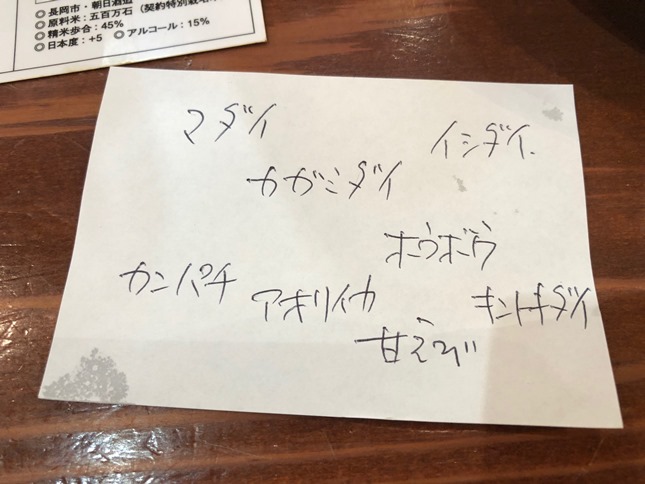 ◎長岡市・朝日酒造
◎原料米：五百万石（契約特別栽培
◎精米歩合：45%
◎日本度：+5 ◎アルコール：15%
マダイ
イシダイ.
カガミダイ
ホウボウ
カンパチ
アオリイカ
キントキダイ
甘えび